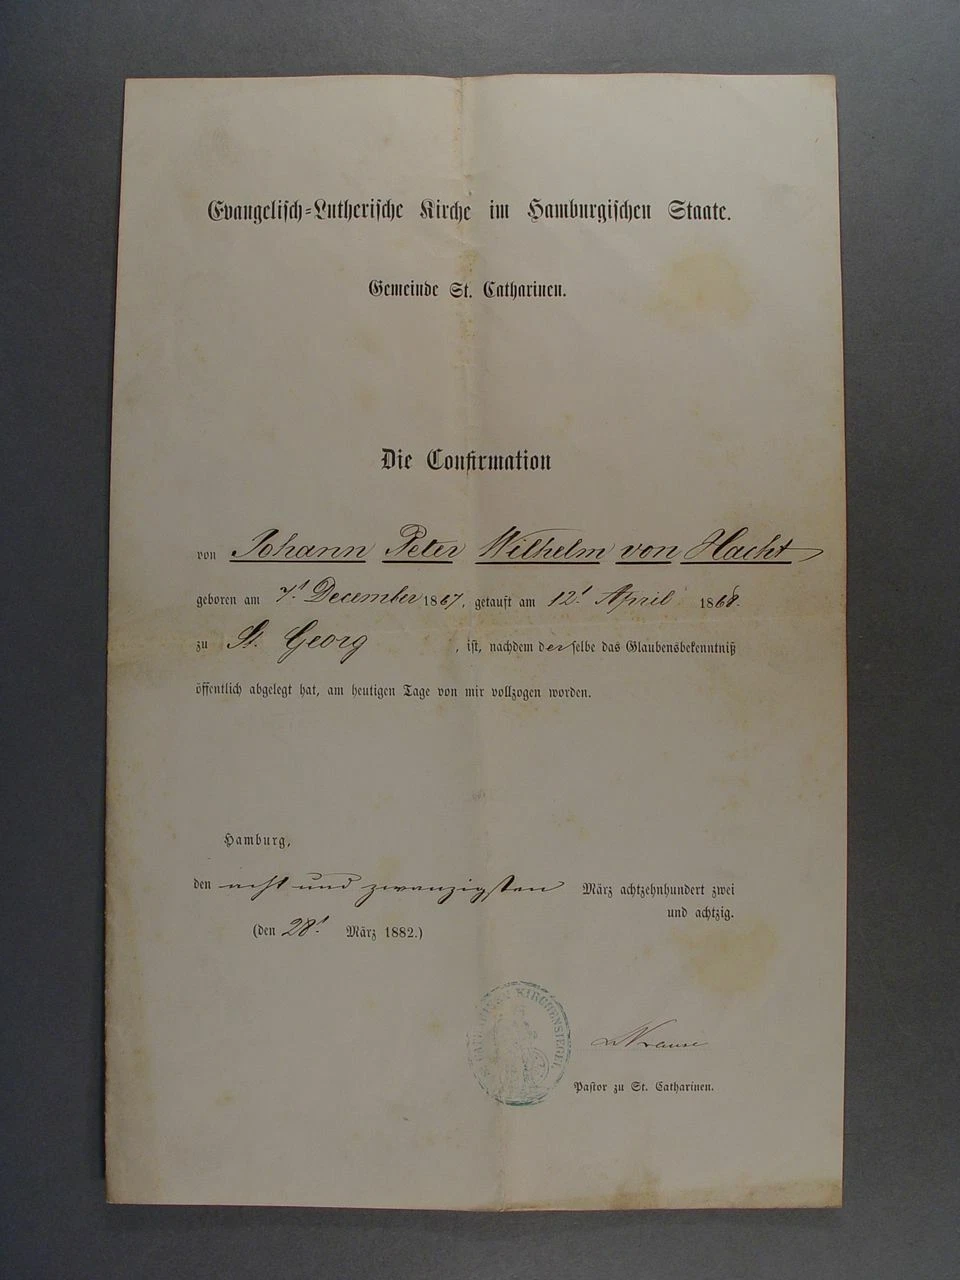 Evangelisch-Lutherische Kirche im Hamburgischen Staate.
Gemeinde St. Catharinen.
Die Confirmation
von Johann Peter Wilhelm von Hacht
geboren am 7t. December 1867, getauft am 12t. April 1868.
zu St. Georg, ist, nachdem derselbe das Glaubensbekenntniß
öffentlich abgelegt hat, am heutigen Tage von mir vollzogen worden.
Hamburg,
den acht und zwanzigsten März achtzehnhundert zwei
und achtzig.
(den 28t. März 1882.)
KIRCHENSIEGEL
Krause
Pastor zu St. Catharinen.